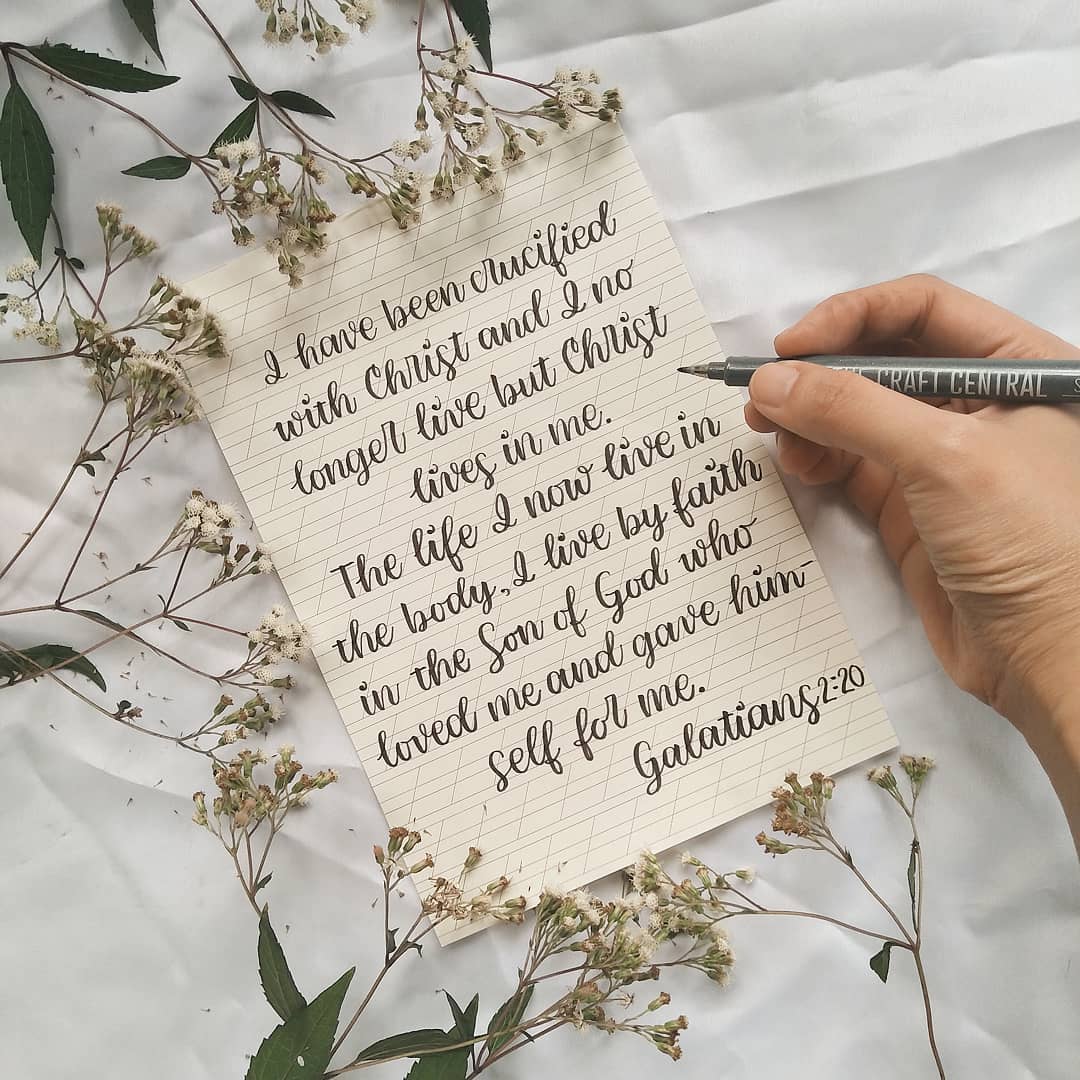 I have been crucified
with Christ and I no
longer live but Christ
lives in me.
The life I now live in
the body, I live by faith
in the Son of God who
loved me and gave him-
self for me.
Galatians 2:20
CRAFT CENTRAL